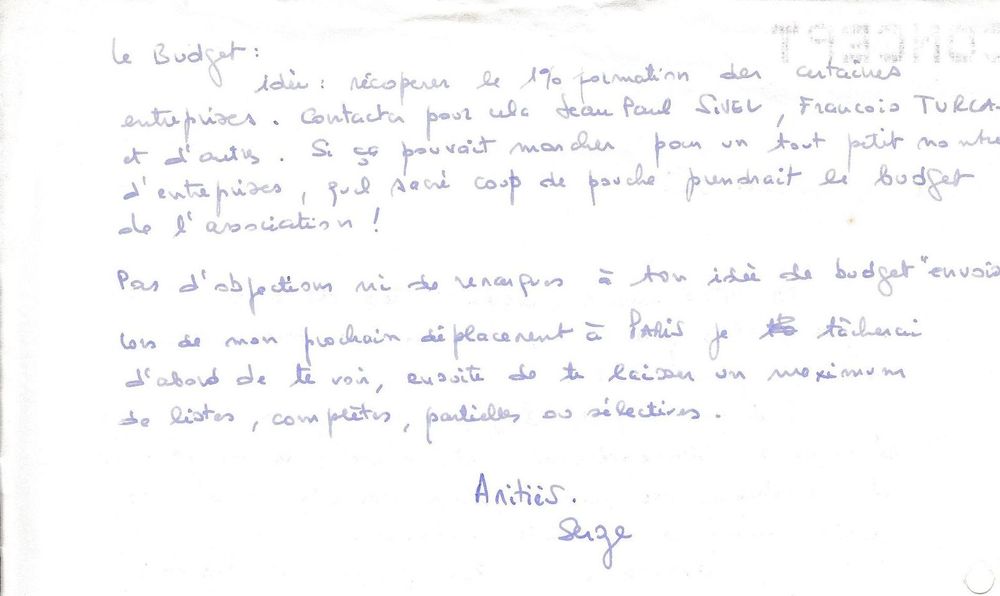 Le Budget :
idée : récupérer le 1% formation des certaines
entreprises. Contacter pour cela Jean Paul SIVEL, François TURCA
et d'autres. Si ça pouvait marcher pour un tout petit nombre
d'entreprises, quel sacré coup de pouche prendrait le budget
de l'association !
Pas d'objections ni de remarques à ton idée de budget "envois
Lors de mon prochain déplacement à PARIS je tâcherai
d'abord de te voir, ensuite de te laisser un maximum
de listes, complètes, partielles ou sélectives.
Amitiés.
Serge